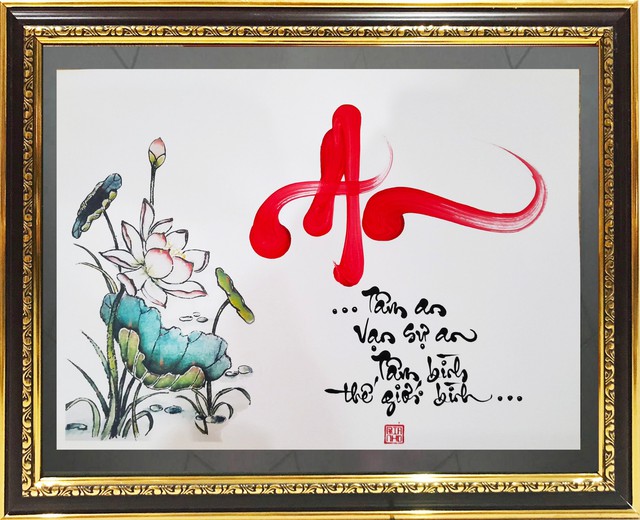 An
... Tâm an
vạn sự an
Tâm bình
thế giới bình ...